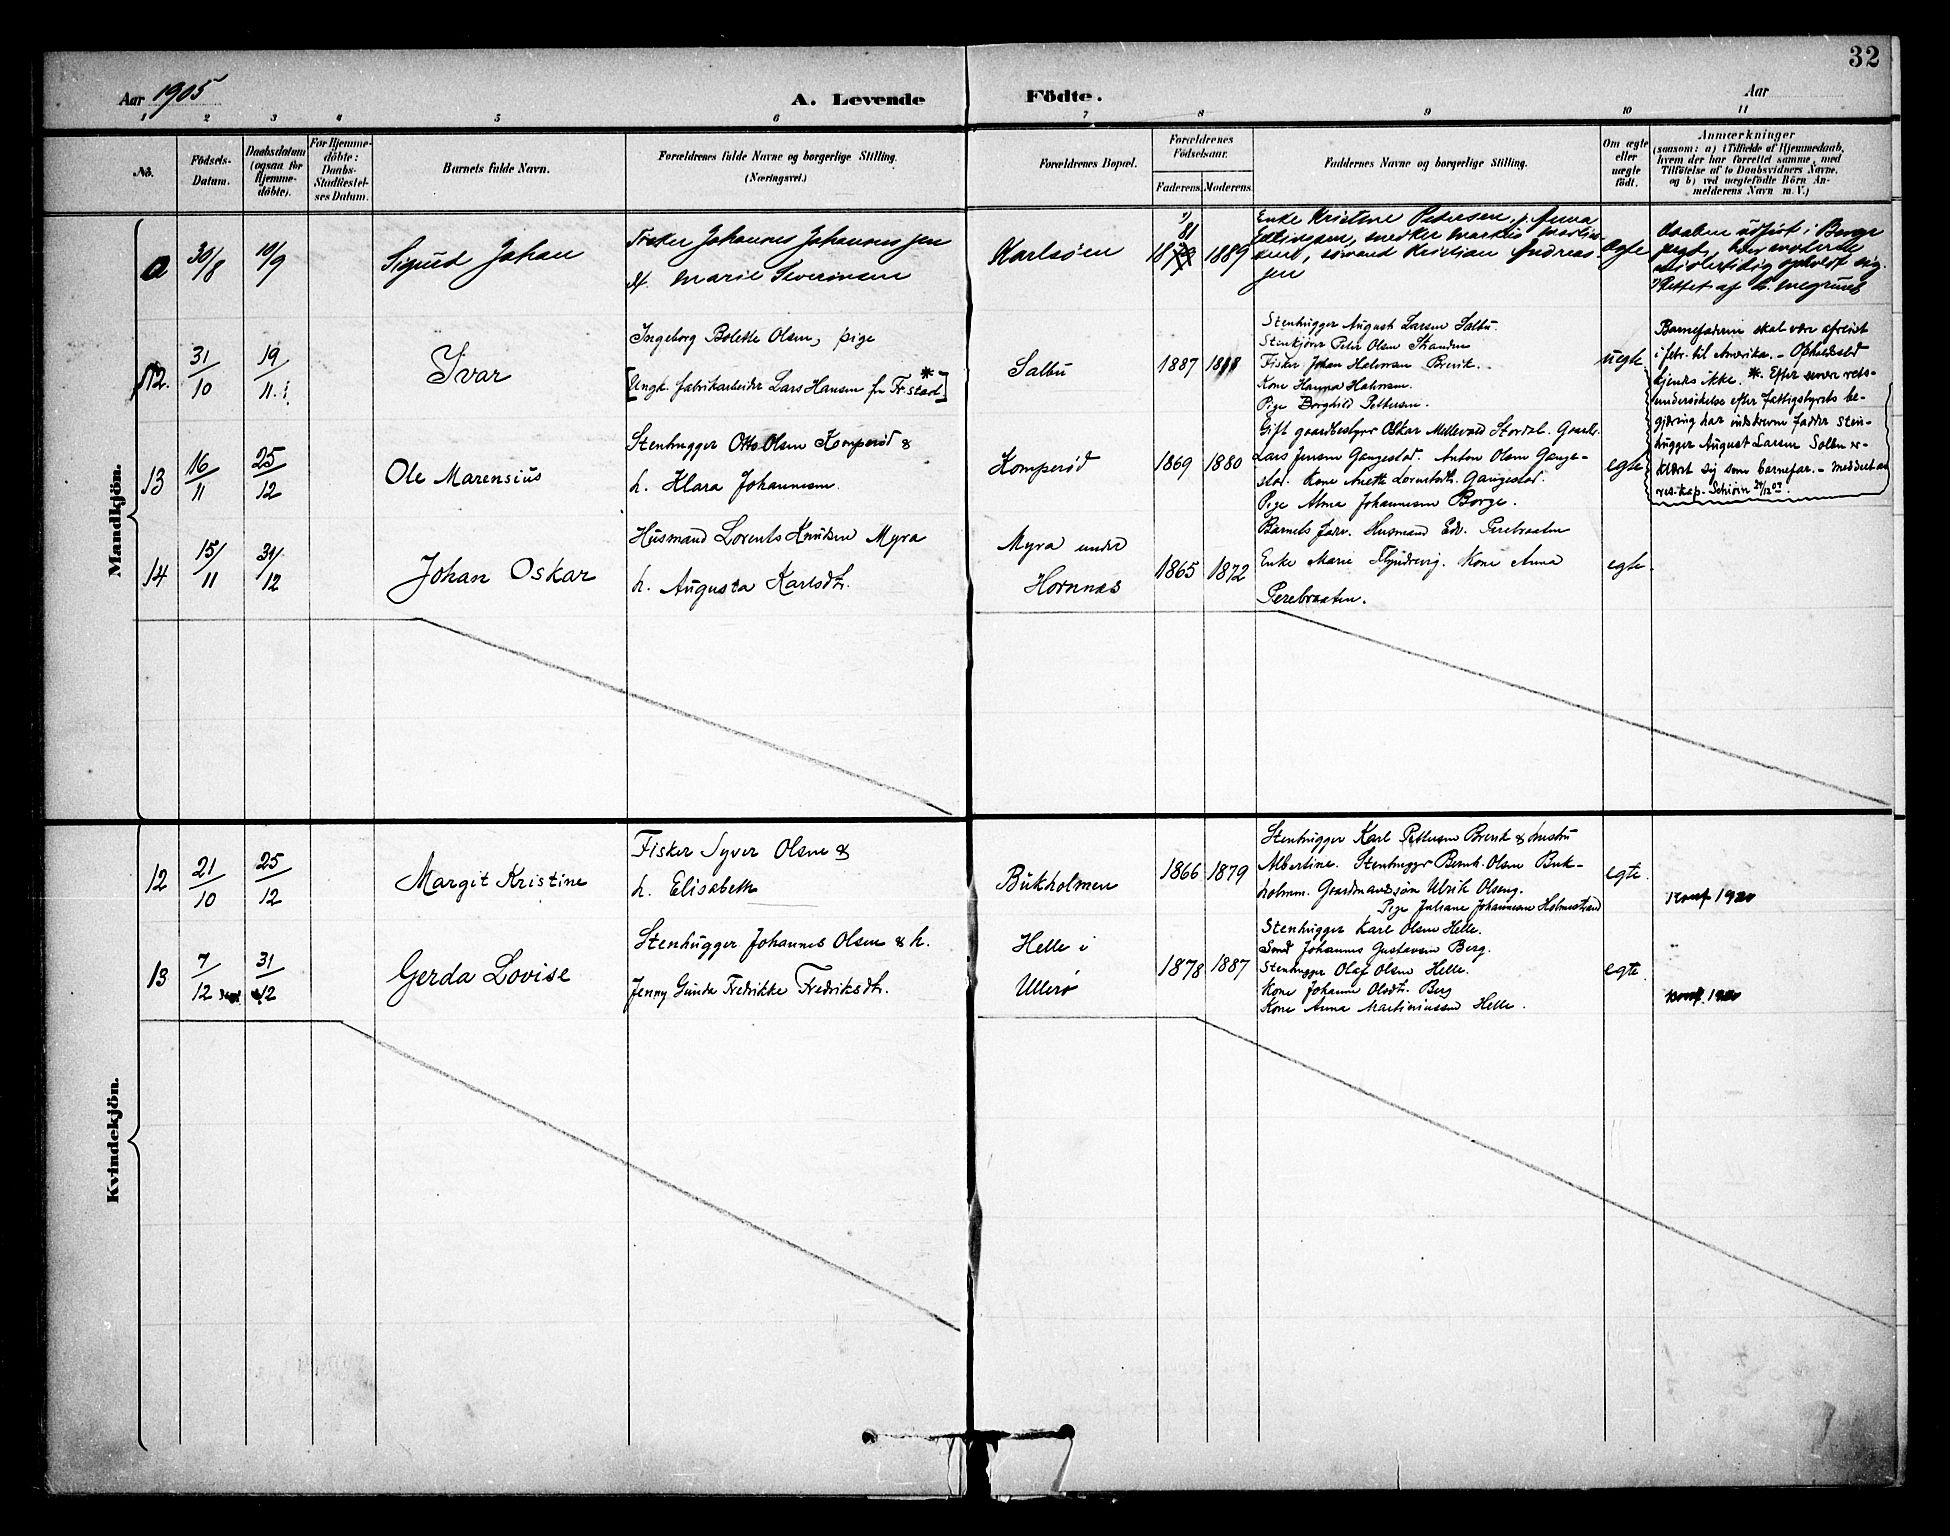 32
Aar 1905
A. Levende Födte.
Aar
1 2 3 4 5 6 7 8 9 10 11
No.
Födsels-Datum.
Daabsdatum (ogsaa for Hjemme-döbte).
For Hjemme-döbte: Daabs-Stadfæstel-ses Datum.
Barnets fulde Navn.
Forældrenes fulde Navne og borgerlige Stilling.
(Næringsvei.)
Forældrenes Bopæl.
Forældrenes Födselsaar.
Faderens. Moderens.
Faddernes Navne og borgerlige Stilling.
Om ægte eller uægte födt.
Anmærkninger
(saasom: a) i Tilfælde af Hjemmedaab,
hvem der har forrettet samme, med
Tilföielse af to Daabsvidners Navne,
og b) ved uægtefödte Börn An-
melderens Navn m. V.)
Mandkjön.
a
30/8
10/9
Sigurd Johan
Fisker Johannes Johannessen
Marie Severinsen
Karlsöen
81
1889
Enke Kristine Pedersen, p. Anna
sömand Kristian Andreas-
sen
ægte
Daaben udført i Borge
midlertidig opholdt sig.
Rettet af
12.
31/10
19/11
Ivar
Ingeborg Bolette Olsen, pige
[Ungk. fabrikarbeider Lars Hansen fr Fr.stad *]
Salbu
1887
Stenhugger August Larsen Salbu.
Peter Olsen Stranden
Fisker Johan Halvorsen Brevik.
Kone Hanna Halvorsen.
Pige Borghild Pettersen.
uegte
Barnefaderen skal være afreist
i febr. til Amerika. - Opholdsted
kjendes ikke. * Efter senere rets-
undersökelse efter fattigstyrets be-
gjæring har indskrevne fadder sten-
hugger August Larsen er-
klært sig som barnefar. - meddelt av
13
16/11
25/12
Ole Marensius
Stenhugger Otto Olsen Komperöd &
h. Klara Johannesen.
Komperöd
1869 1880
Gift gaardbestyrer Oskar Mellevold Stordal. Gaardb.
Lars Jensen Gangestad. Anton Olsen Gange-
stad. Kone Anette Gangestad.
Pige Alma Johannesen Borge.
egte
14
15/11
31/12
Johan Oskar
Husmand Lorents Knudsen Myra
h. Augusta Karlsdtr.
Myra under
Hornnæs
1865 1872
Barnets farv. Husmand Edv. Perebraaten
Enke Marie Flyndrevig. Kone Anna
Perebraaten.
egte.
Kvindekjön.
12
21/10
25/12
Margit Kristine
Fisker Syver Olsen &
h. Elisabeth
Bukholmen
1866 1879
Stenhugger Karl Pettersen Brevik & hustru
Albertine. Stenhugger Bernh. Olsen Buk-
holmen. Gaardmandssön Ulrik Olseng.
Pige Juliane Johannesen Holmestrand
egte.
Konf 1920
13
7/12
31/12
Gerda Lovise
Stenhugger Johannes Olsen & h.
Jenny Gunda Fredrikke Fredriksdtr.
Helle i
Ullerö
1878 1887
Stenhugger Karl Olsen Helle.
Smed Johannes Gustavsen Berg.
Stenhugger Olaf Olsen Helle.
Kone Johanne Olsdtr. Berg
Kone Anna Martiniussen Helle.
egte
Konf. 1920